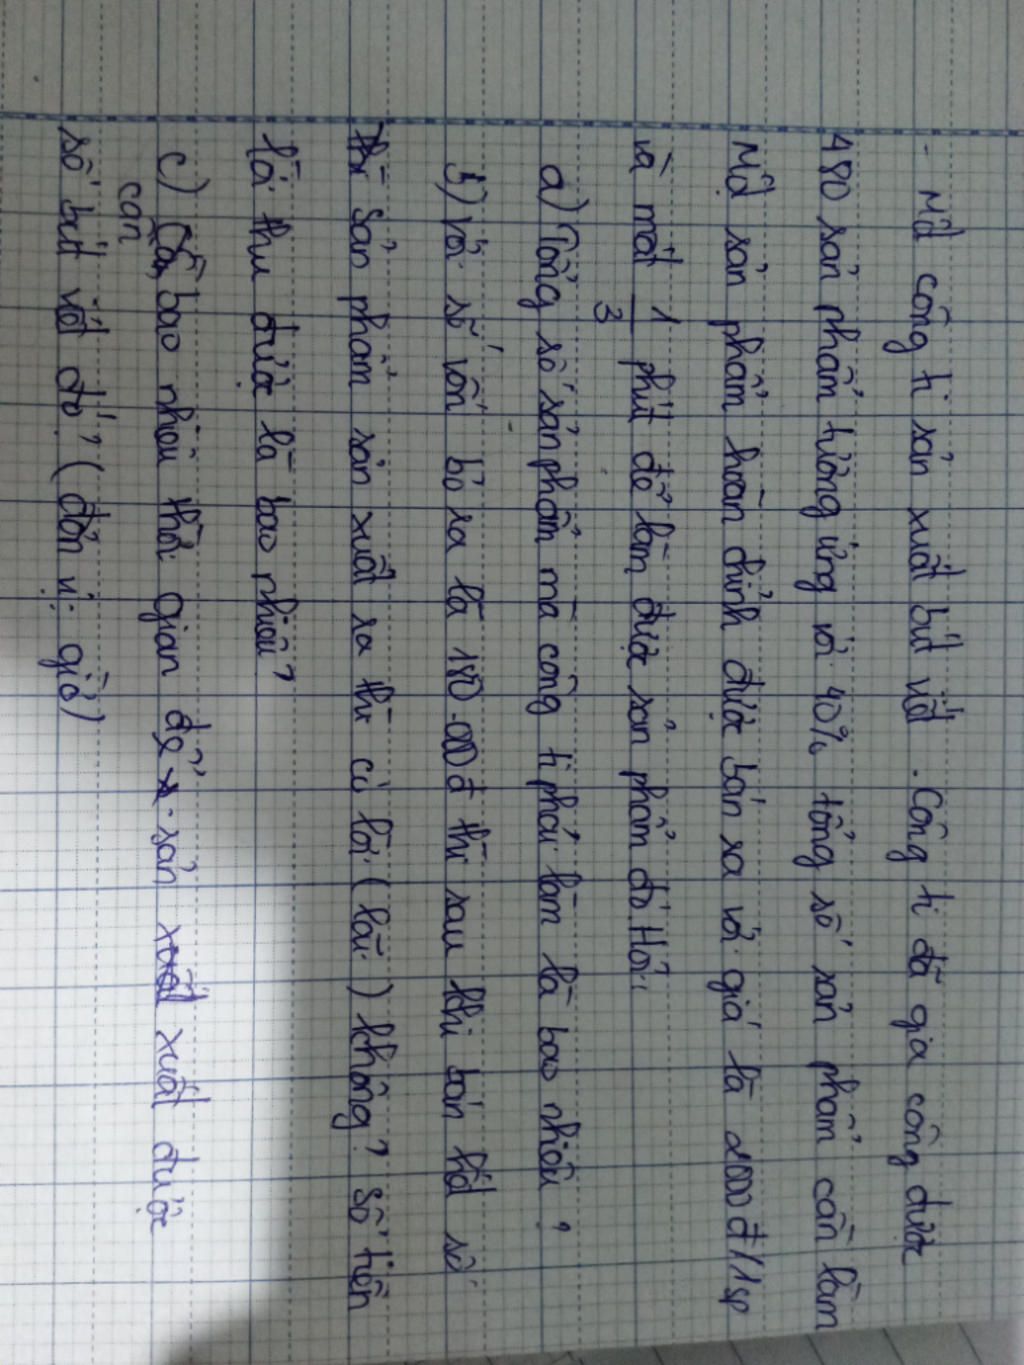 - Một công ti sản xuất bút viết. Công ti đã gia công được
480 sản phẩm tương ứng với 40% tổng số sản phẩm cần làm
Một sản phẩm hoàn chỉnh được bán ra với giá là 2000 đ/1sp
và mất 1/3 phút để làm được sản phẩm đó. Hỏi:
a) Tổng số sản phẩm mà công ti phải làm là bao nhiêu?
b) Với số vốn bỏ ra là 180.000đ thì sau khi bán hết số
sản phẩm sản xuất ra thì có lời (lãi) không? Số tiền
lời thu được là bao nhiêu?
c) Cần bao nhiêu thời gian để sản xuất được
số bút viết đó? (đơn vị: giờ)